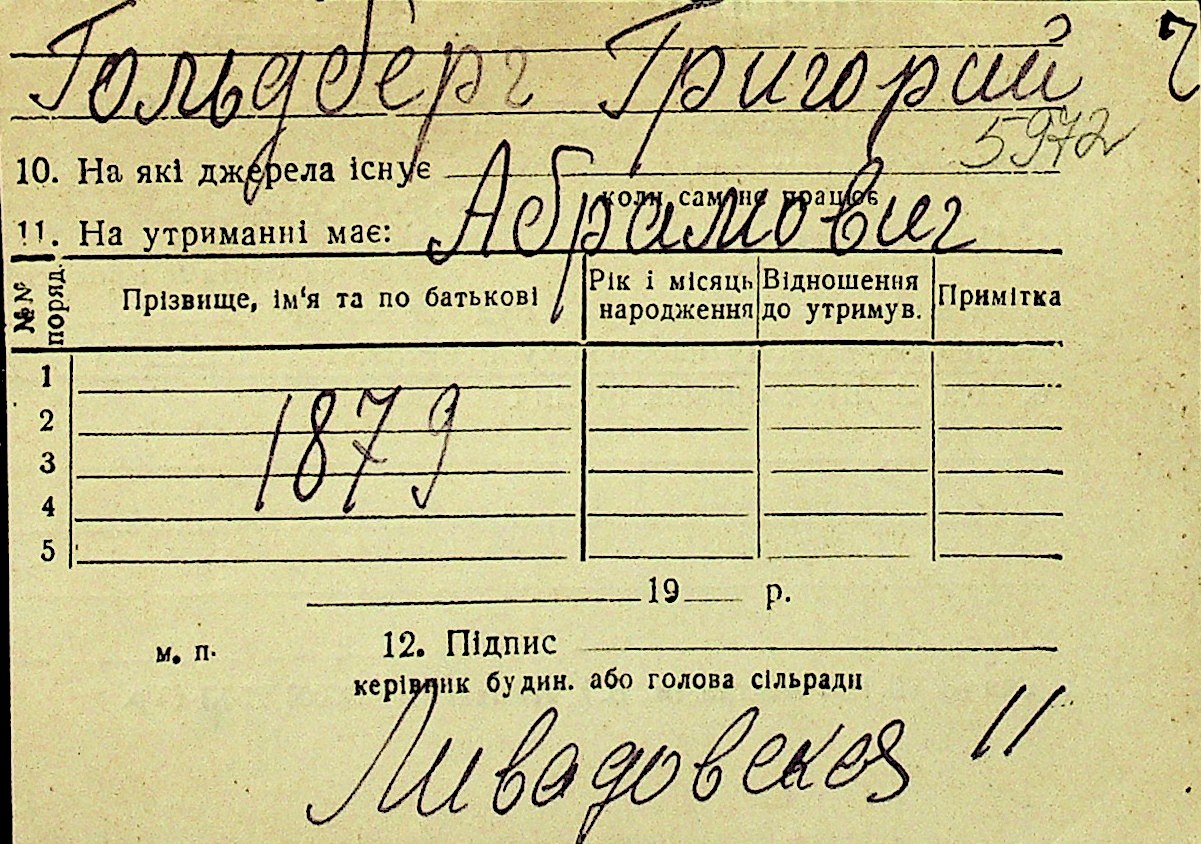 Гольдберг Григорий
5972
10. На які джерела існує
коли сам не працює
Абрамович
11. На утриманні має:
№№ поряд. Прізвище, ім'я та по батькові Рік і місяць народження Відношення до утримув. Примітка
1
2
3
4
5
1879
19 р.
м. п. 12. Підпис
керівник будин. або голова сільради
Ливадовская 11